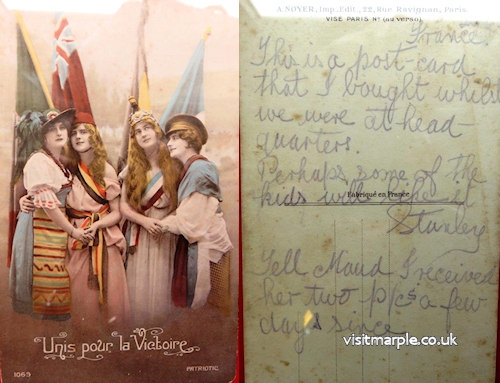 Unis pour la Victoire
1069
PATRIOTIC
A NOYER, Imp. Edit., 22, Rue Ravignan, Paris
VISÉ PARIS N° (au verso)
France.
This is a post-card
that I bought whilst
we were at head-
quarters.
Perhaps some of the
kids will
Fabriqué en France
Stanley
Tell Maud I received
her two p/cs a few
days since
visitmarple.co.uk